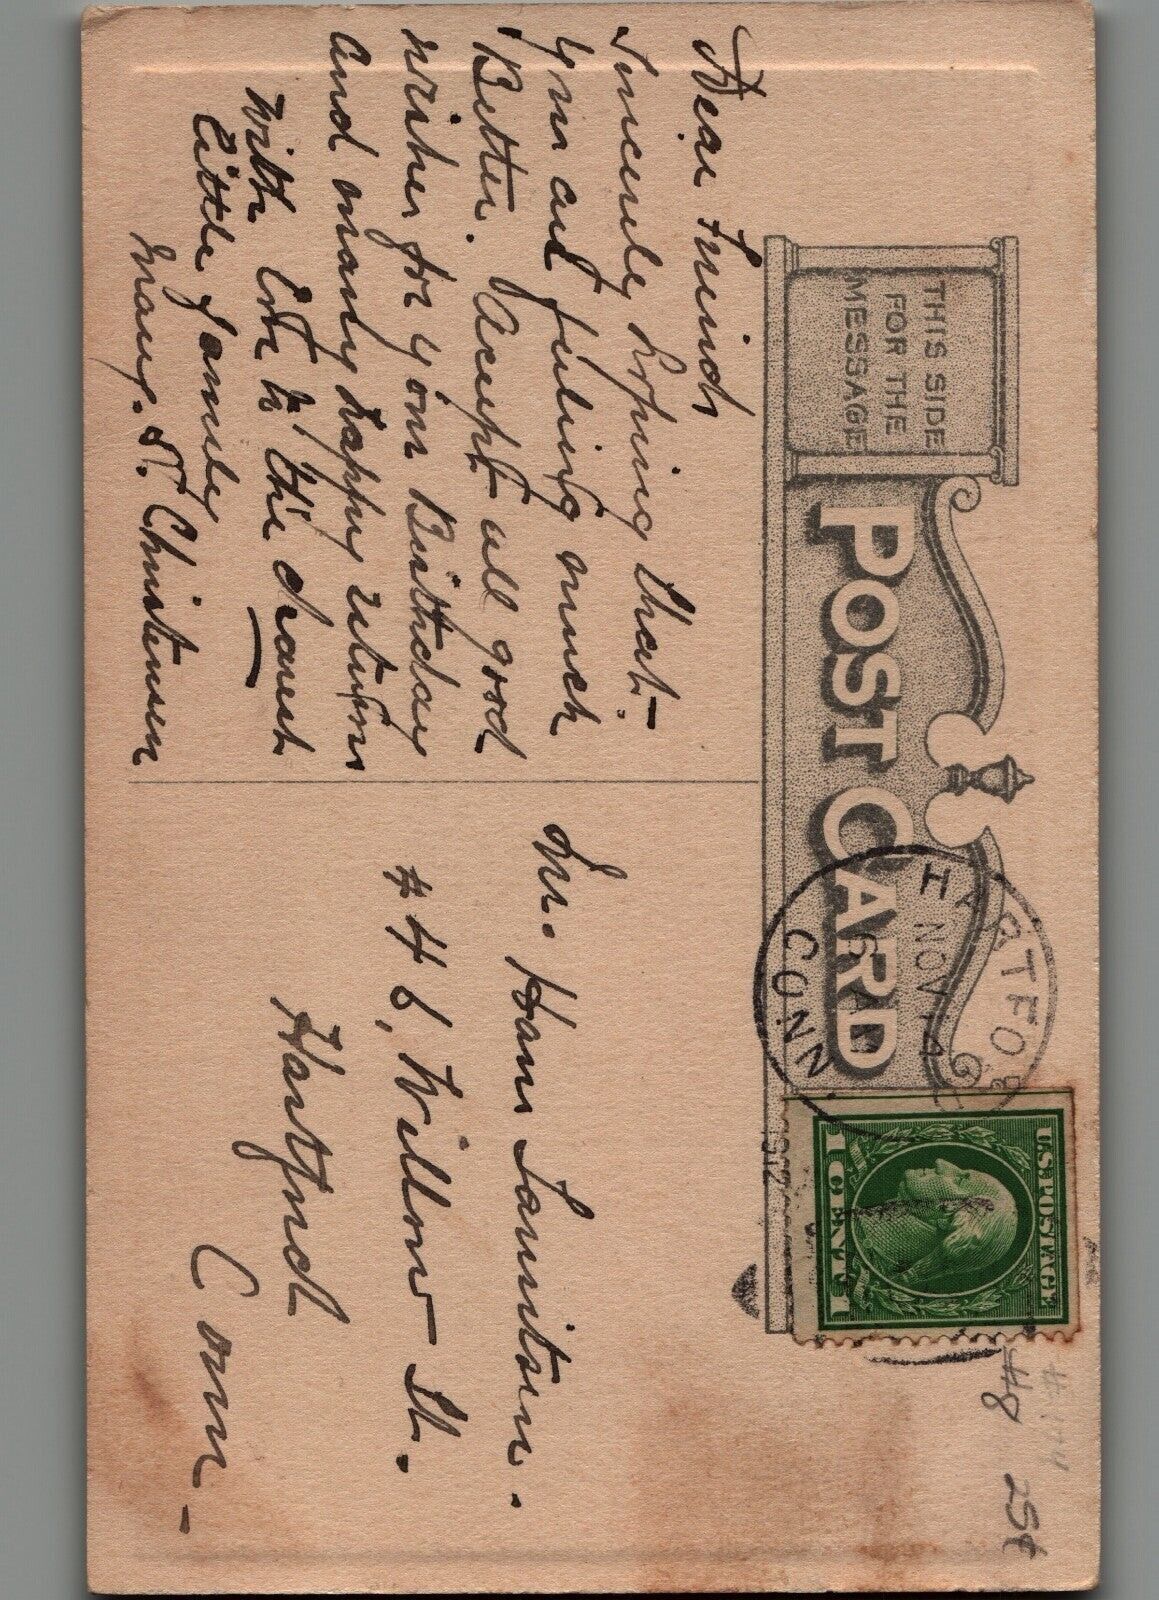 THIS SIDE
FOR THE
MESSAGE
POST CARD
HARTFOR
NOV 14
6 AM
1912
CONN.
U.S. POSTAGE
1 CENT 1
#8 25¢
Dear Friend
Sincerely hoping that
you are feeling much
Better. Accept all good
wishes for your Birthday
and many happy returns
with love to the dearest
little family
Marg. S. Christensen
Mr. Hans Lauritsen.
#46, Willow St.
Hartford
Conn -